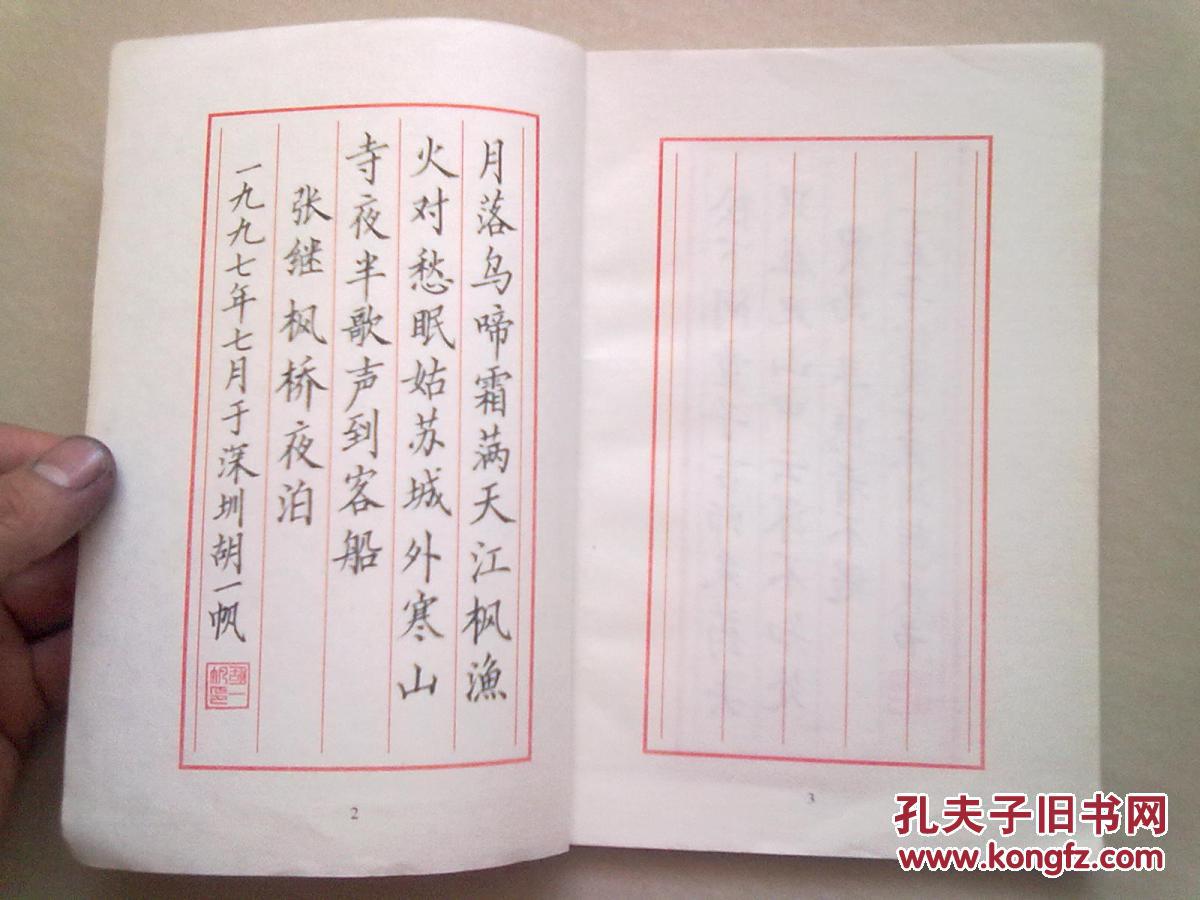 月落乌啼霜满天江枫渔
火对愁眠姑苏城外寒山
寺夜半歌声到客船
张继枫桥夜泊
一九九七年七月于深圳胡一帆
2
3
孔夫子旧书网
www.kongfz.com